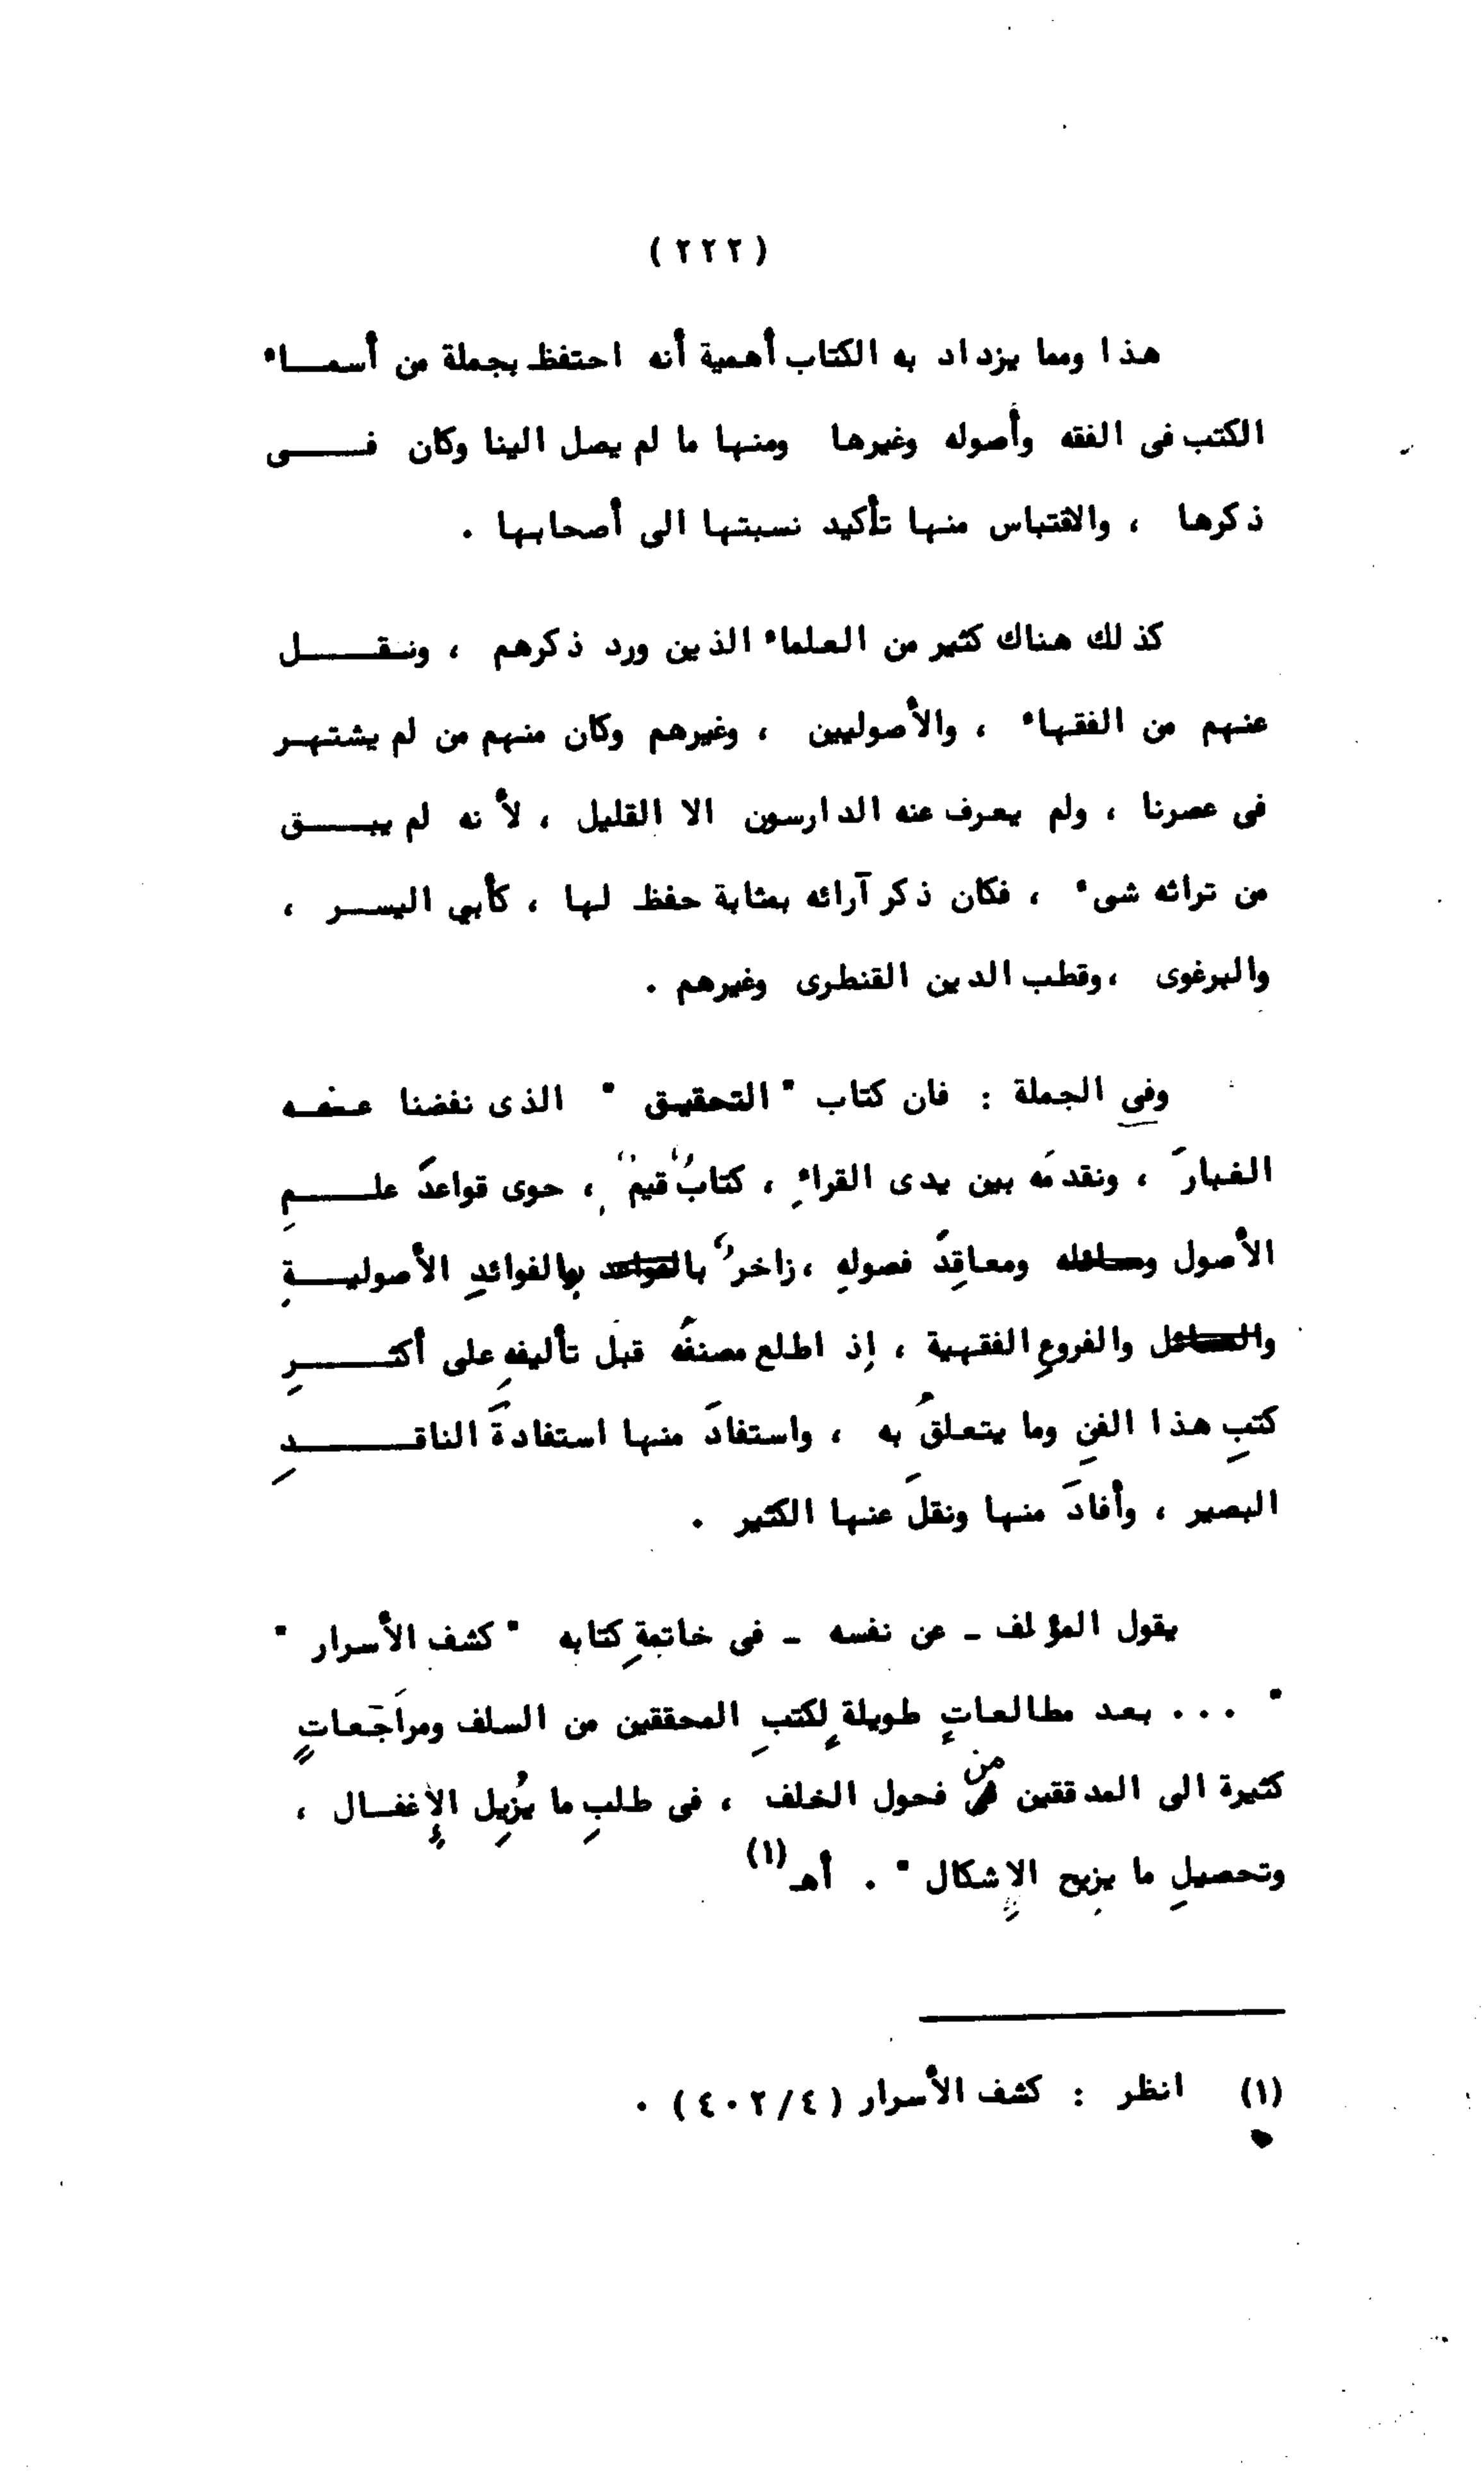 ( ٢٢٢ )
هذا ومما يزداد به الكتاب أهمية أنه احتفظ بجملة من أسماء
الكتب فى الفقه وأصوله وغيرها ومنها ما لم يصل الينا وكان فى
ذكرها ، والاقتباس منها تأكيد نسبتها الى أصحابها .
كذلك هناك كثير من العلماء الذين ورد ذكرهم ، ونقل
عنهم من الفقهاء ، والأصوليين ، وغيرهم وكان منهم من لم يشتهر
فى عصرنا ، ولم يعرف عنه الدارسون الا القليل ، لأنه لم يبق
من تراثه شىء ، فكان ذكر آرائه بمثابة حفظ لها ، كأبي اليسر ،
والبرغوى ، وقطب الدين القنطرى وغيرهم .
وفى الجملة : فان كتاب " التحقيق " الذى نفضنا عنه
الغبارَ ، ونقدمَه بين يدى القراءِ ، كتابٌ قيمٌ ، حوى قواعدَ علمِ
الأصول ومسائله ومعاقدَ فصولهِ ، زاخرٌ بالقواعد بالفوائدِ الأصوليةِ
والمسائل والفروعِ الفقهية ، إذ اطلع مصنفُه قبلَ تأليفهِ على أكثرِ
كتبِ هذا الفنِ وما يتعلقُ به ، واستفادَ منها استفادةَ الناقدِ
البصير ، وأفادَ منها ونقلَ عنها الكثير .
يقول المؤلف - عن نفسه - فى خاتمةِ كتابه " كشف الأسرار "
" ... بعد مطالعاتٍ طويلةٍ لكتبِ المحققين من السلف ومراجَعاتٍ
كثيرة الى المدققين من فحول الخلف ، فى طلبِ ما يُزِيل الإغفال ،
وتحصيلِ ما يزِيح الإشكال " . أهـ (١)
(١) انظر : كشف الأسرار ( ٤ / ٤٠٢ ) .